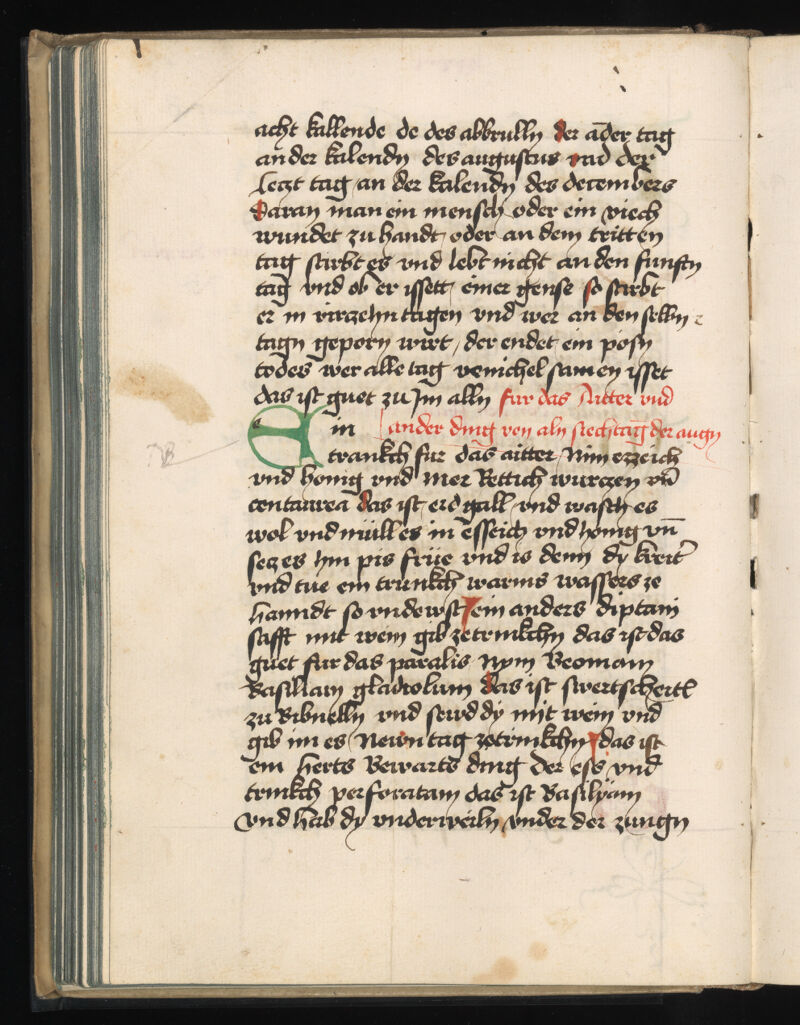 acht kallende de des abbrulln der ader tag
an der kalendn des augustus vnd der
letzt tag an der kalendn des decembers
daran man ein mensch oder ein viech
wundet zu handt oder an dem tritten
tag stirbt es vnd lebt nicht an den funftn
tag vnd ob er issett einer gense so stirbt
er in virzehn tagen vnd wer an den selbn
tagn geporn wirt der endet ein posn
todes wer alle tag venichel samen isset
das ist guet zu Jm alln fur das Aitter vnd
Ein ander ding von aln siechtag der augn
tranckh fur das aitter Nim ezzeich
vnd honig vnd mer Rettich wurczen vn̄
centaurea das ist erd gall vnd wasch es
wol vnd müll es in esseich vnd honig vn̄
secz es hin pis frue vnd is denn dy kreit
vnd tue ein trunkch warms wassers ze
hanndt so vndewst ein anders diptam
safft mit wein gib ze trinkchn das ist das
guet fur das paralis Nym Beoniam
Basiliam gladiolum das ist swertschertl
zu Bibnelln vnd sewd dy mit wein vnd
gib im es Newn tag ze trinkchn das ist
ein herts Bewarts ding der ess vnd
trinkch perforatam das ist Basilyam
vnd hab dy vnderweiln vnder der zungn